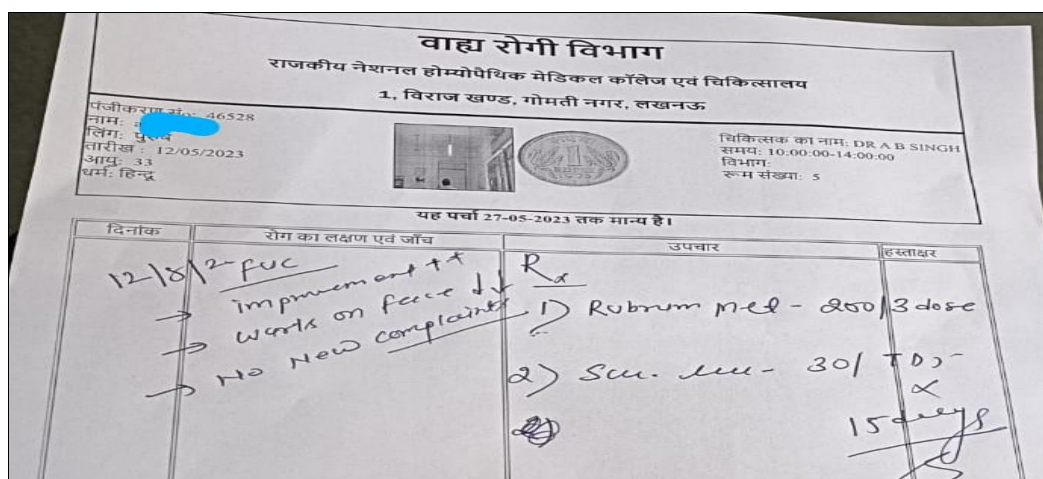 वाह्य रोगी विभाग
राजकीय नेशनल होम्योपैथिक मेडिकल कॉलेज एवं चिकित्सालय
1, विराज खण्ड, गोमती नगर, लखनऊ
पंजीकरण सं०: 46528
नाम:
लिंग: पुरुष
तारीख : 12/05/2023
आयु: 33
धर्म: हिन्दू
चिकित्सक का नाम: DR A B SINGH
समय: 10:00:00-14:00:00
विभाग:
रूम संख्या: 5
यह पर्चा 27-05-2023 तक मान्य है।
दिनांक रोग का लक्षण एवं जाँच उपचार हस्ताक्षर
FUC
→ improvement ++
→ warts on face ↓↓
→ No New complaints
Rx
1) Rubrum - 200/3 dose
2) 30/ TDS
x
15 days